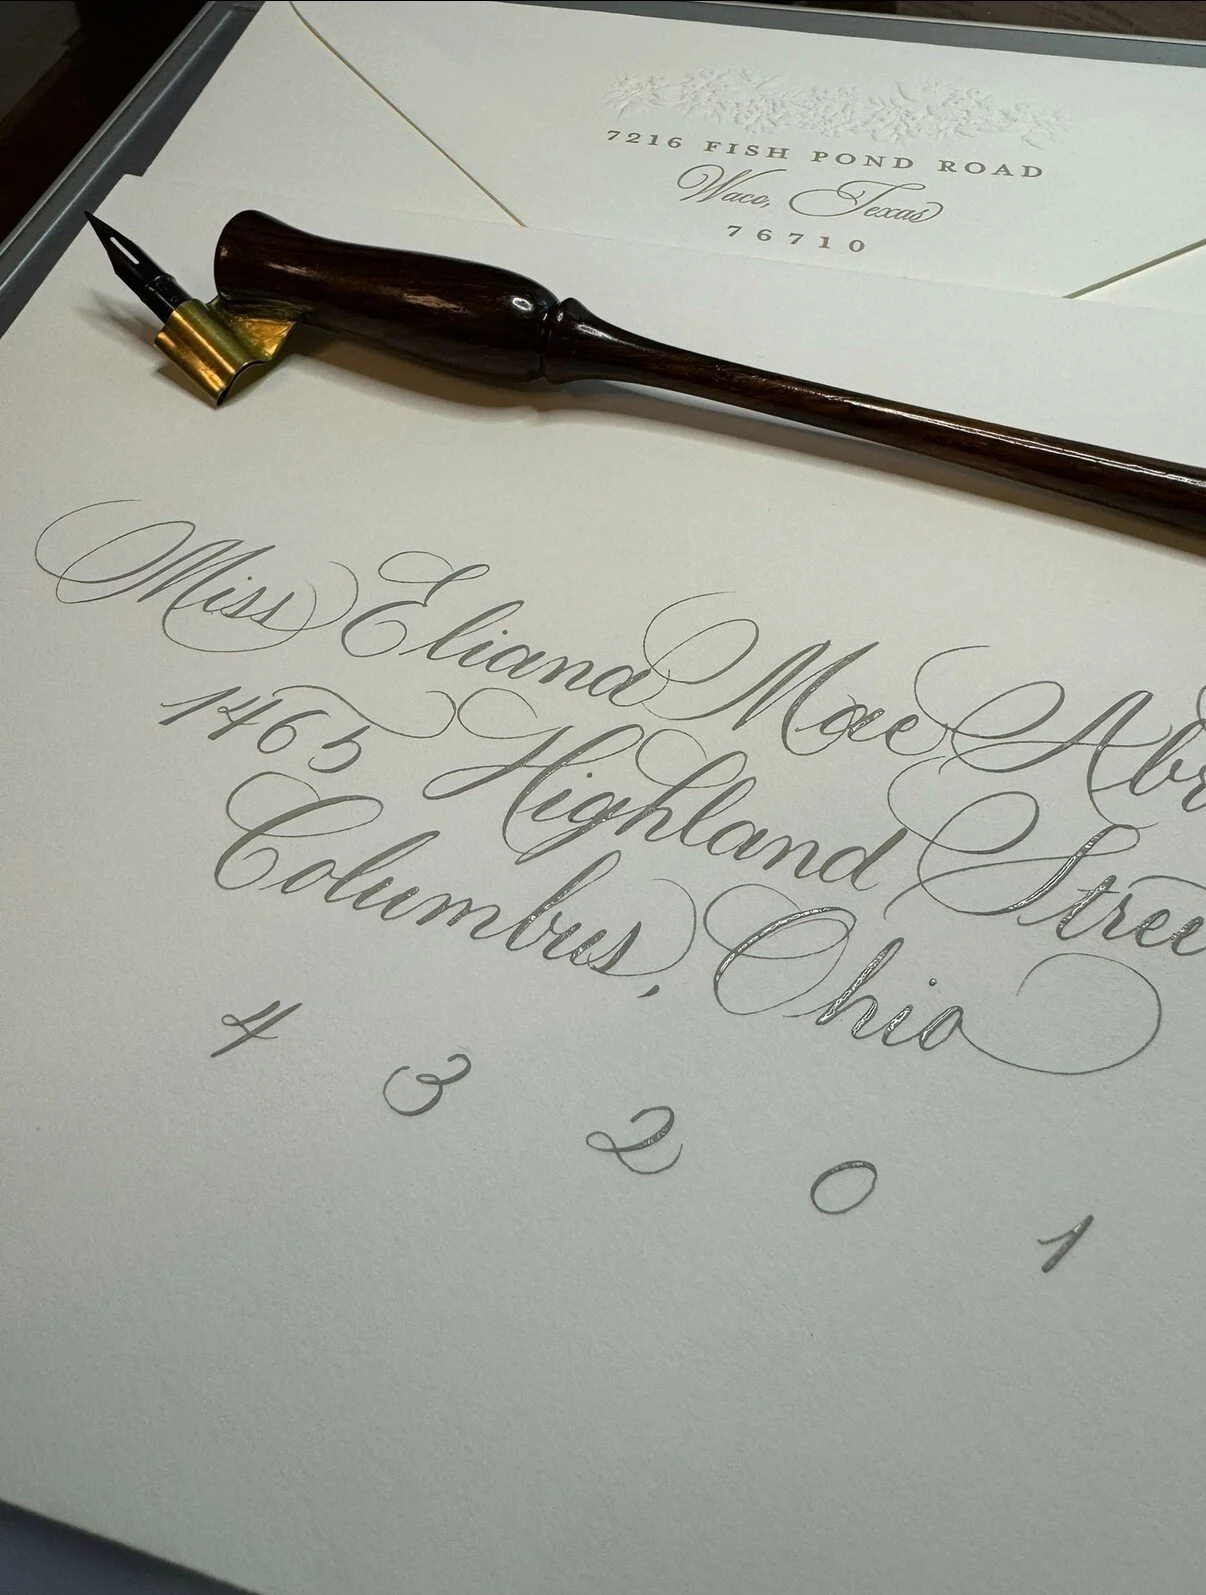 7216 FISH POND ROAD
Waco, Texas
76710
Miss Eliana Mae Abr
1465 Highland Stree
Columbus, Ohio
4 3 2 0 1